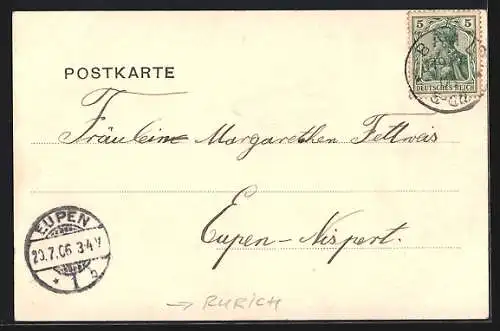 5 5
DEUTSCHES REICH
POSTKARTE
Fräulein Margarethen Fettweis
Eupen-Nispert.
EUPEN
20.7.06 3-4 N
* 1 b
→ RURICH